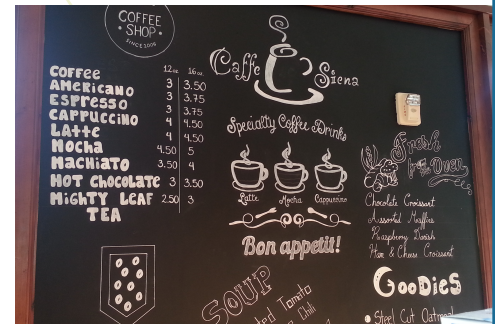 COFFEE
SHOP
SINCE 2008
Caffe Siena
12oz 16oz
COFFEE 3 3.50
AMERICANO 3 3.75
ESPRESSO 3 3.75
CAPPUCCINO 4 4.50
LATTE 4 4.50
MOCHA 4.50 5
MACHIATO 3.50 4
HOT CHOCOLATE 3 3.50
MIGHTY LEAF 2.50 3
TEA
Specialty Coffee Drinks
Latte Mocha Cappuccino
Bon appetit!
Fresh
from the Oven
Chocolate Croissant
Assorted Muffins
Raspberry Danish
Ham & Cheese Croissant
GOODIES
Steel Cut Oatmeal
SOUP
Tomato
Chili